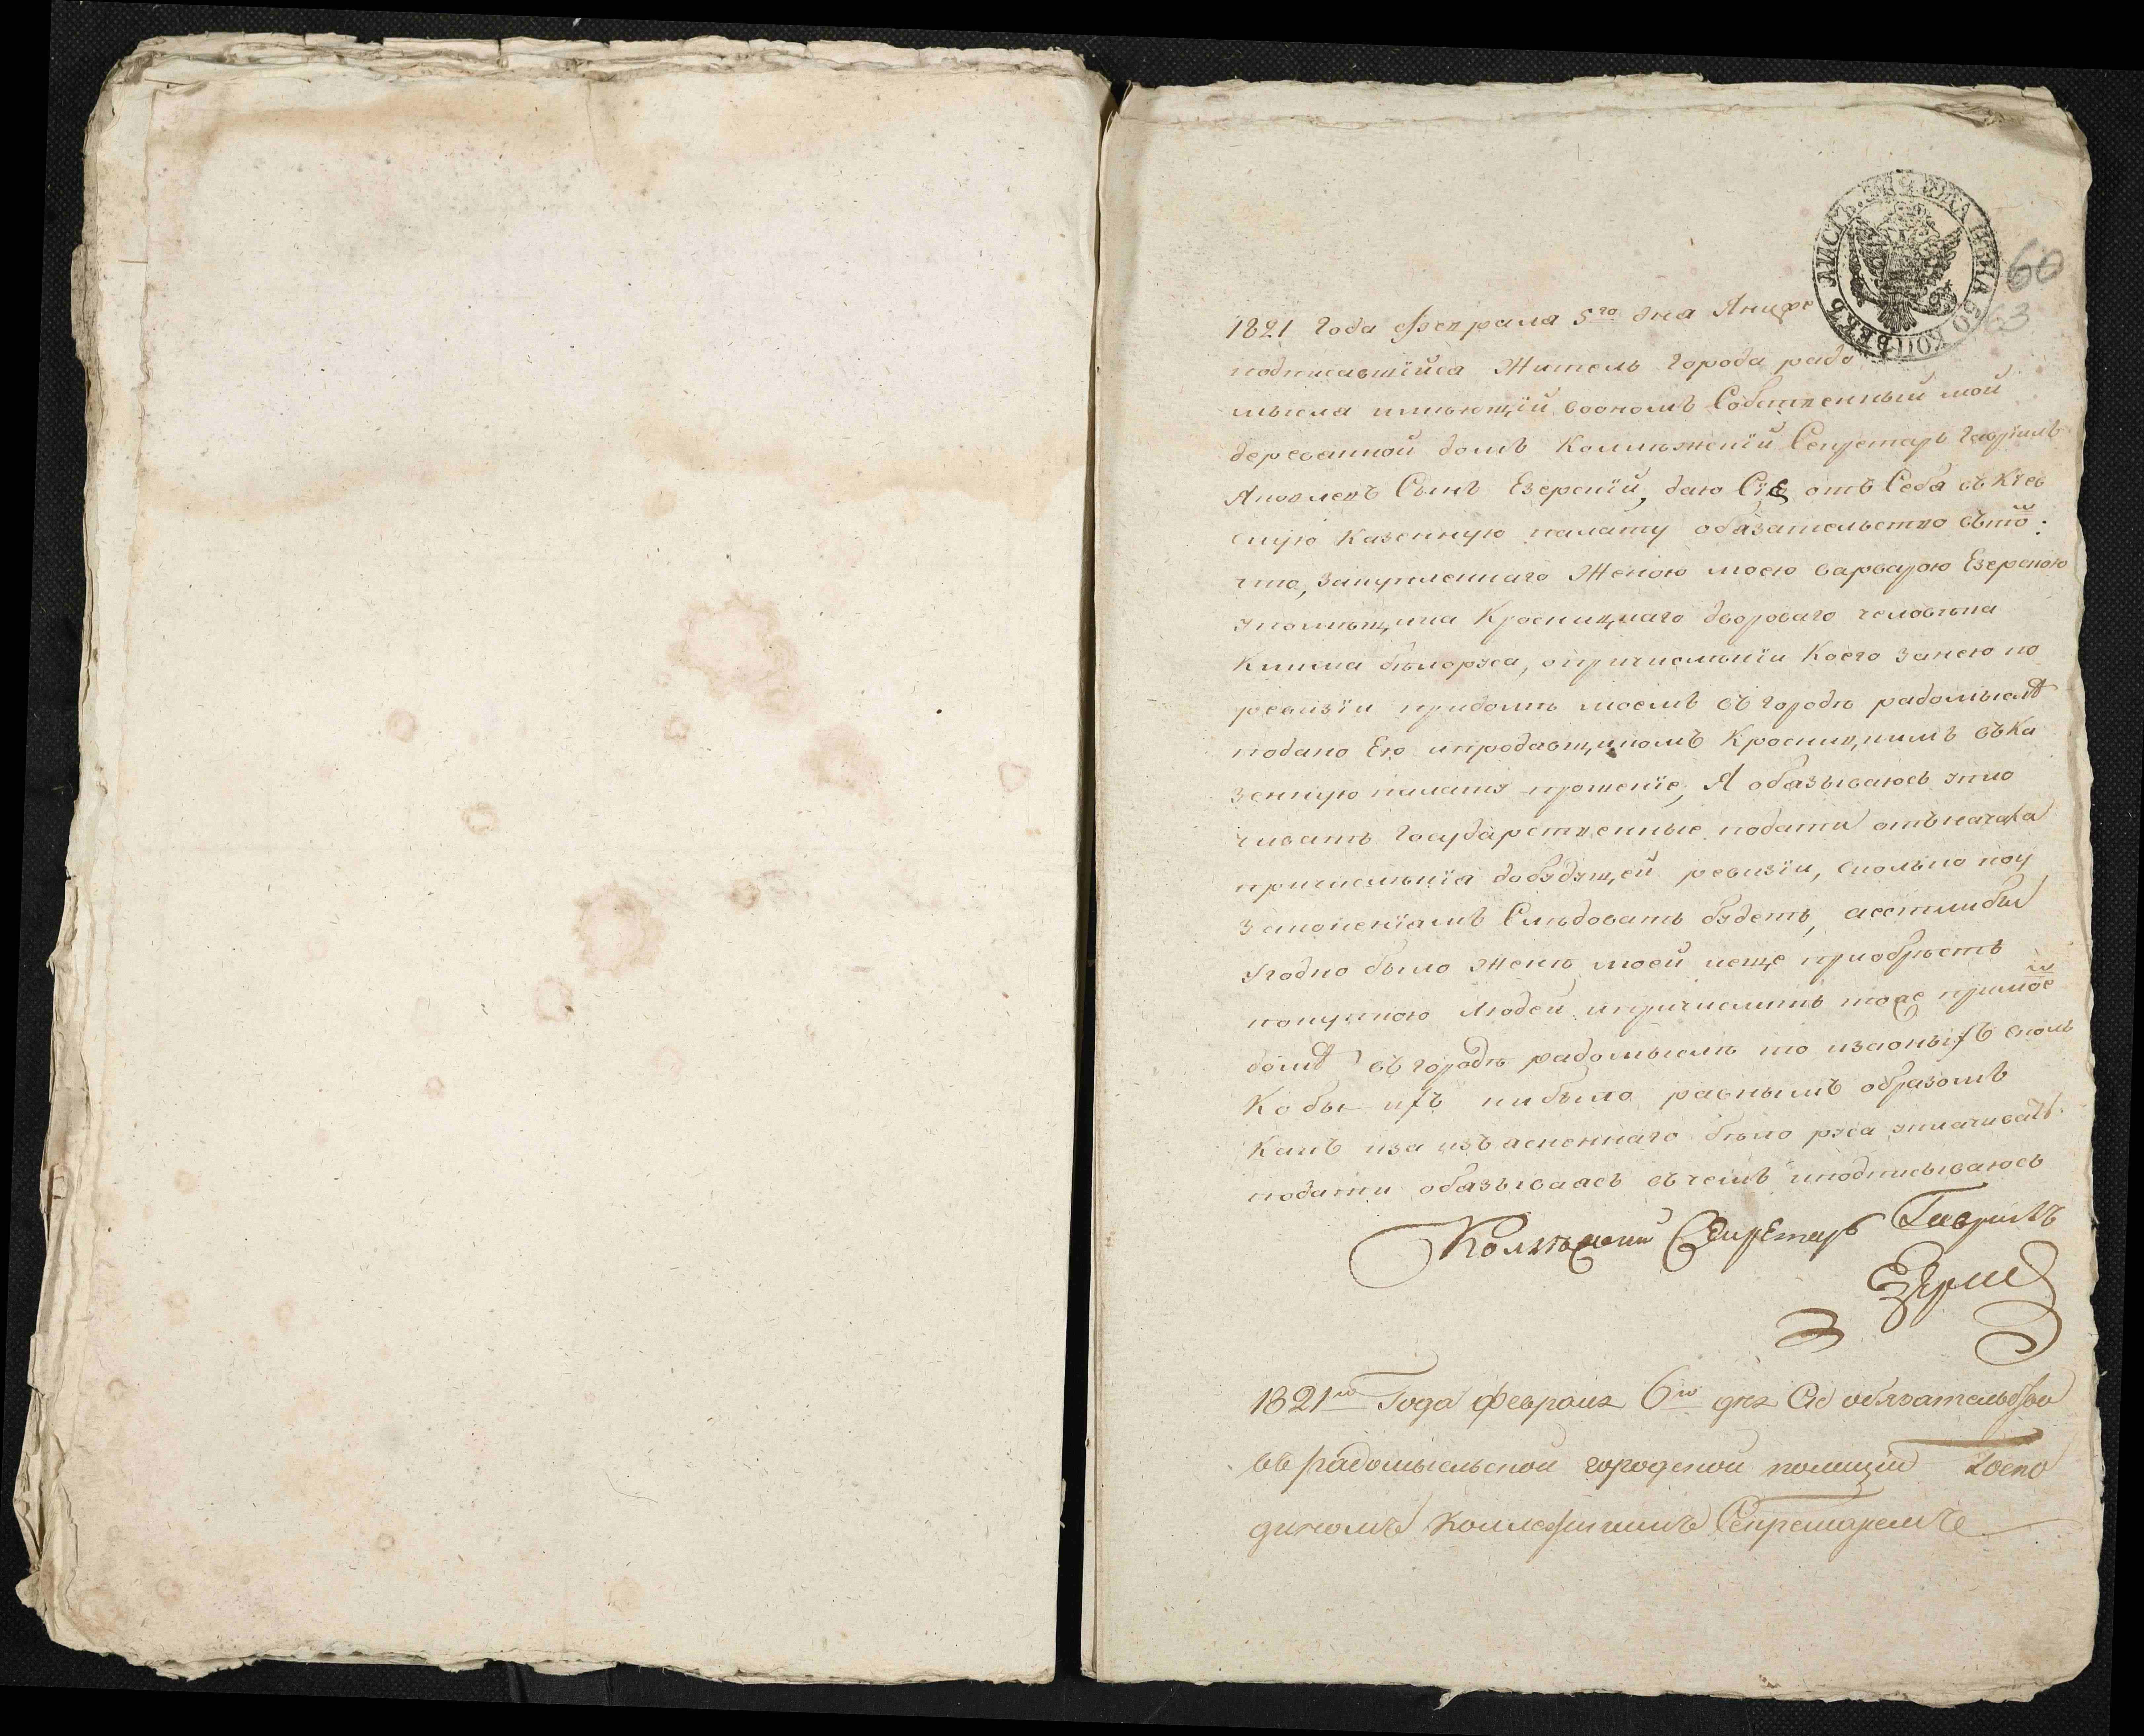 ЛИСТЪ. ЦѢНА 50 КОПѢЕКЪ
60
63
1821 года февраля 5го дня Я ниже
подписавшїйся житель города радо
мысла имѣющїй воономъ Собственный мой
деревянной домъ Коллѣжскїй Секретарь Гаврїилъ
Яковлевъ Сынъ Езерскїй, даю Сїе отъ Себя въ Кїев
скую Казенную палату обязательство въ том
что, закупленнаго Женою моею варварою Езерскою
упомѣщика Кросницкаго двороваго человѣка
Клима бѣлоруса, опричислѣнїи Коего занею по
ревизїи придомѣ моемъ въ городѣ радомыслѣ
подано Ею ипродавщикомъ Кросницкимъ въ Ка
зенную палату прошенїе, Я обязываюсь упла
чивать Государственные подати отъначала
причислѣнїя добудущей ревизїи, сколько поу
законенїямъ Слѣдовать будетъ, аестлибы
угодно было женѣ моей иеще приобрѣсть
покупкою людей, ипричислить тоже примоем
домѣ въ городѣ радомыслѣ то изаоныхъ сколь
Ко бы ихъ нибыло равнымъ образомъ
Какъ иза изъясненнаго бѣло руса уплачивать
подати обязываясь въ чемъ иподписываюсь
Колѣжскии Секретарь Гаврилъ
Езерски
1821го Года февраля 6го дня Сие обязательство
въ радомысльской городской полиции Госпо
диномъ Коллежскимъ Секретаремъ